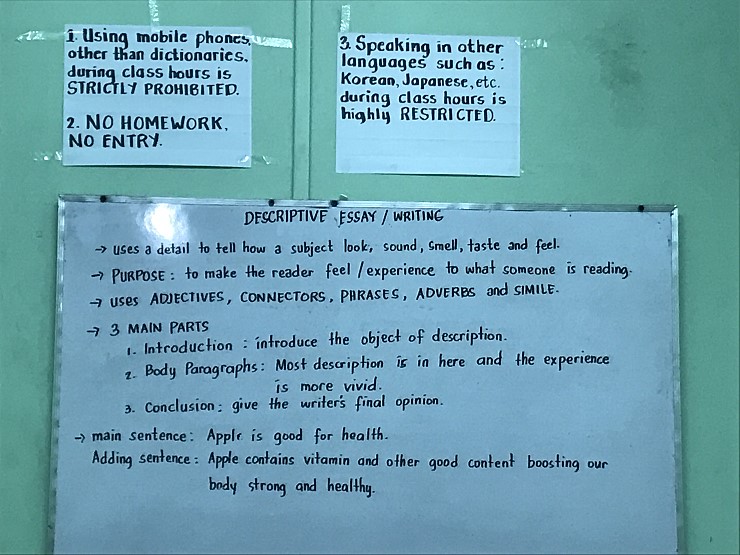 1. Using mobile phones,
other than dictionaries,
during class hours is
STRICTLY PROHIBITED.
2. NO HOMEWORK,
NO ENTRY.
3. Speaking in other
languages such as:
Korean, Japanese, etc.
during class hours is
highly RESTRICTED.
DESCRIPTIVE ESSAY / WRITING
→ uses a detail to tell how a subject look, sound, smell, taste and feel.
→ PURPOSE: to make the reader feel / experience to what someone is reading.
→ uses ADJECTIVES, CONNECTORS, PHRASES, ADVERBS and SIMILE.
→ 3 MAIN PARTS
1. Introduction: introduce the object of description.
2. Body Paragraphs: Most description is in here and the experience
is more vivid.
3. Conclusion: give the writer's final opinion.
→ main sentence: Apple is good for health.
Adding sentence: Apple contains vitamin and other good content boosting our
body strong and healthy.